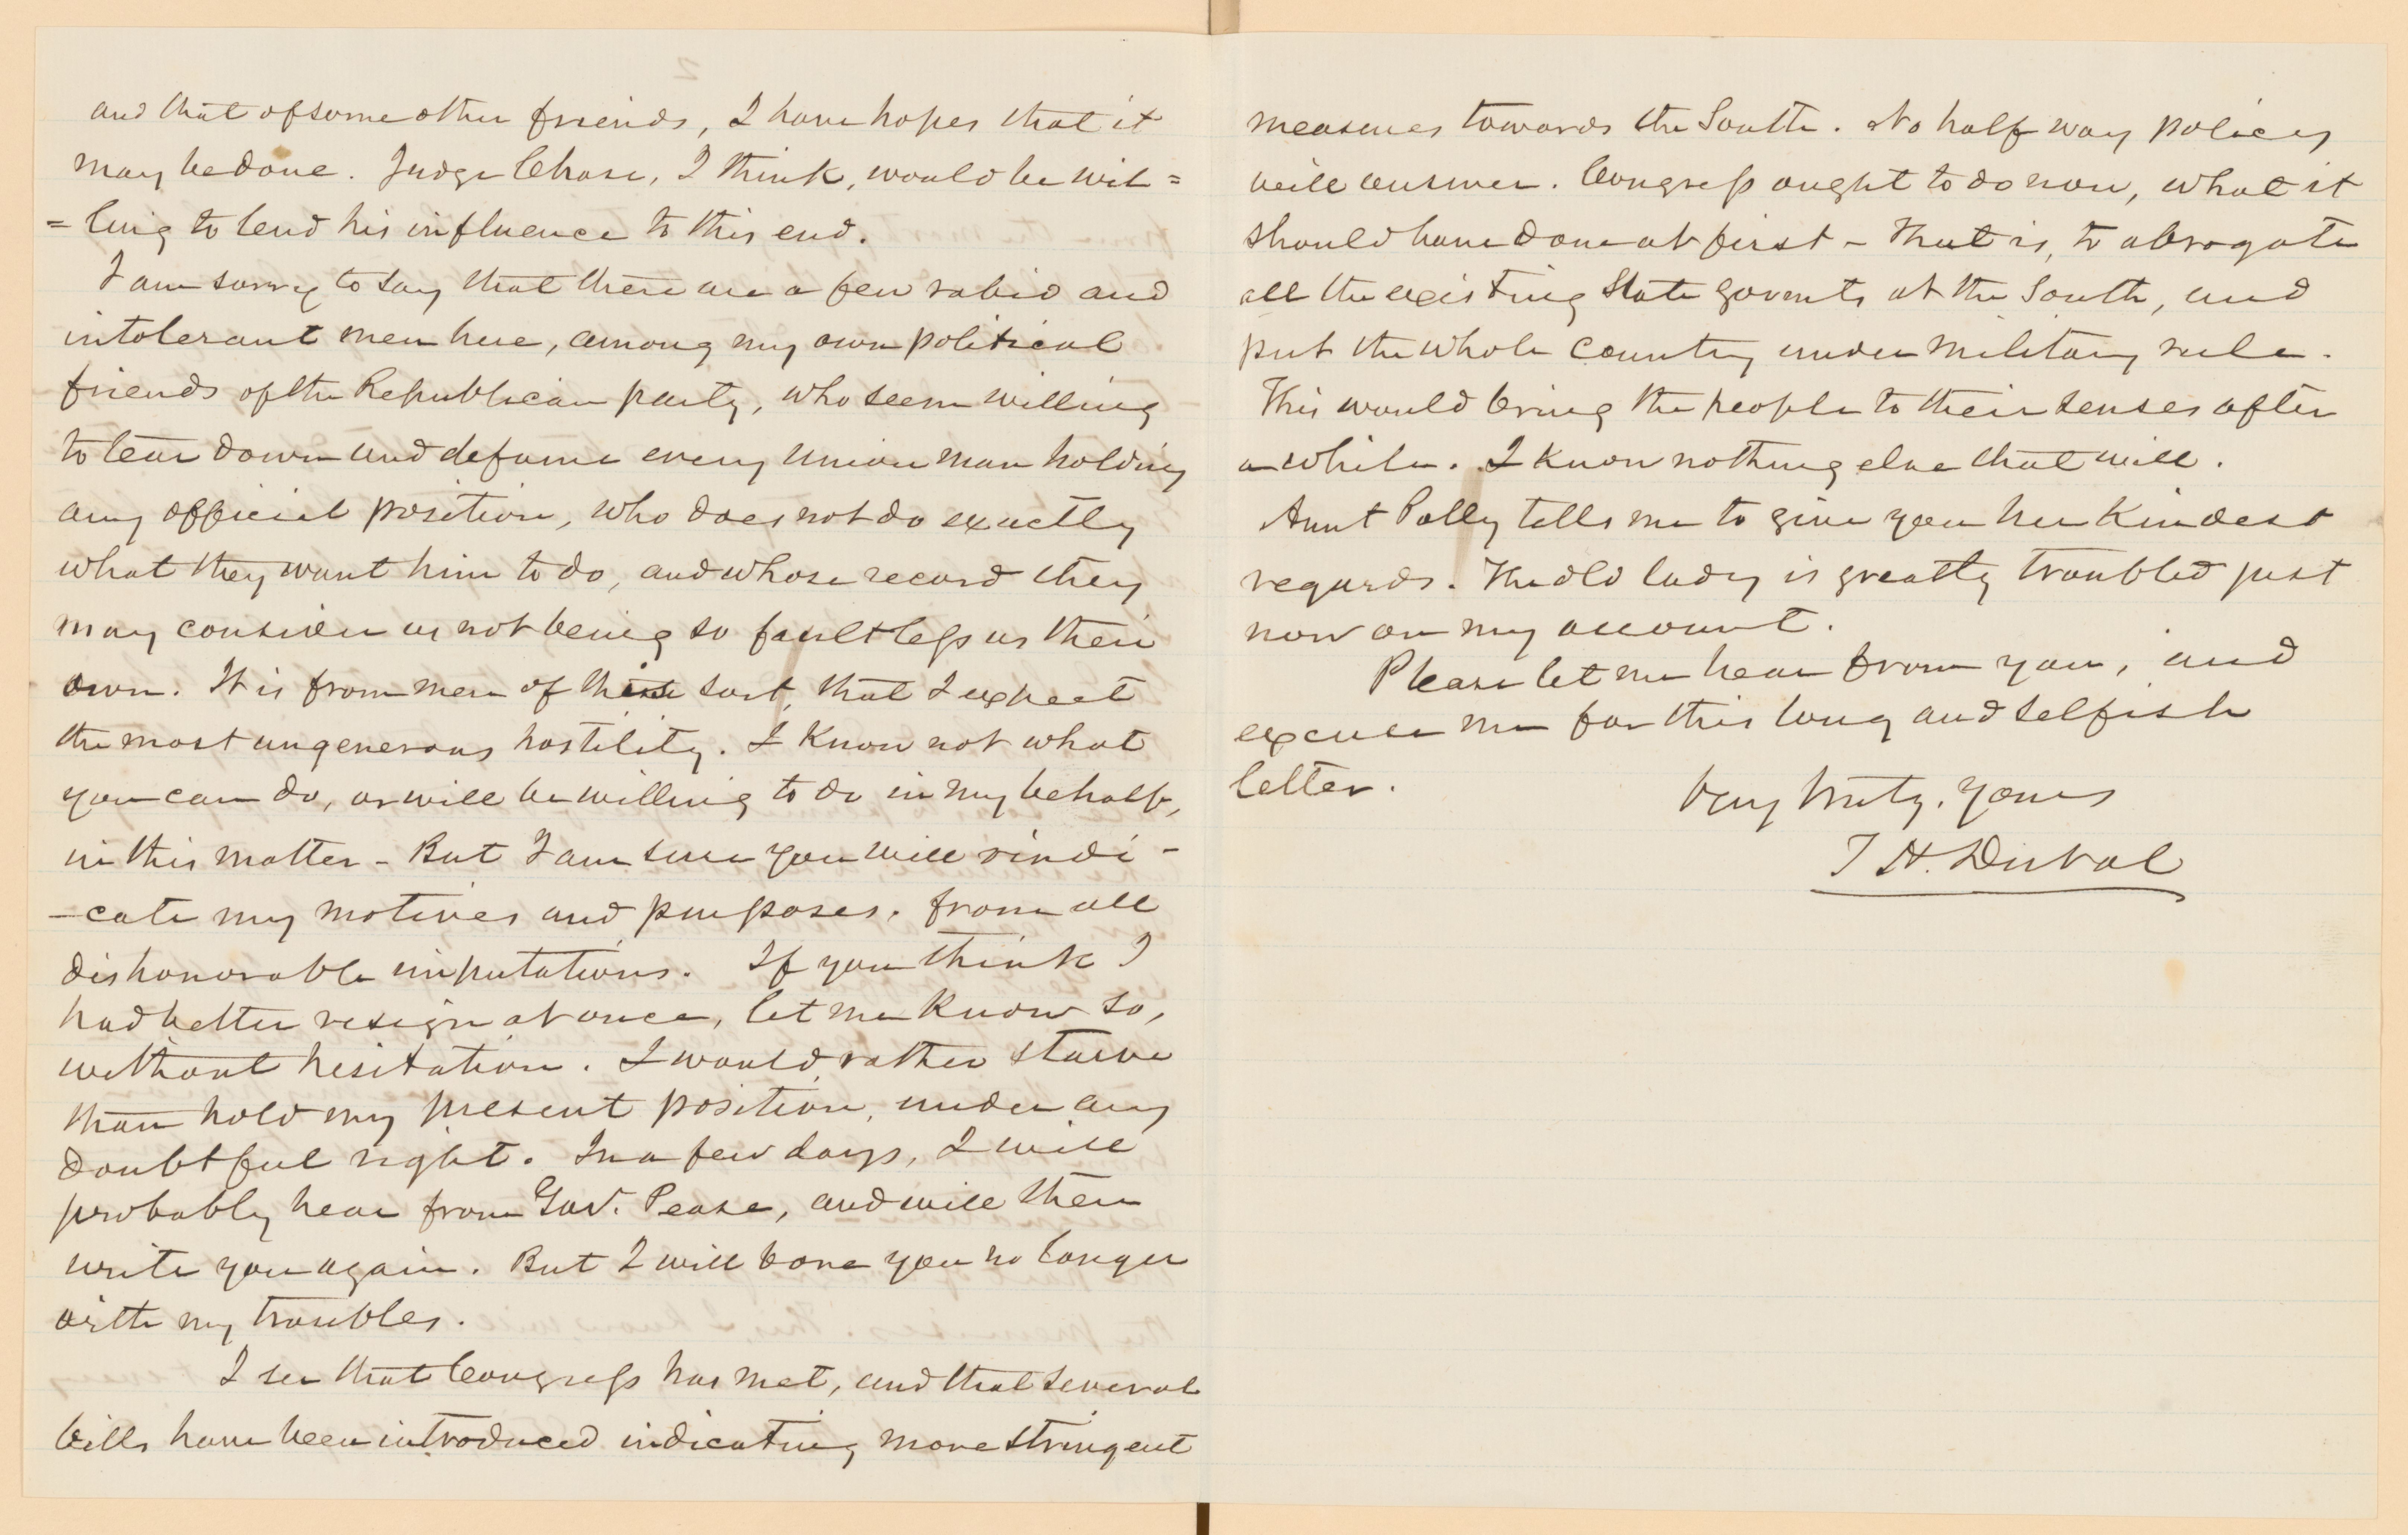 and that of some other friends, I have hopes that it
may be done. Judge Chase, I think, would be wil=
=ling to lend his influence to this end.
I am sorry to say that there are a few rabid and
intolerant men here, among my own political
friends of the Republican party, who seem willing
to tear down and defame every Union man holding
any official position, who does not do exactly
what they want him to do, and whose record they
may consider as not being so faultless as their
own. It is from men of this sort, that I expect
the most ungenerous hostility. I know not what
you can do, or will be willing to do in my behalf,
in this matter - But I am sure you will vindi-
-cate my motives and purposes, from all
dishonorable imputations. If you think I
had better resign at once, let me know so,
without hesitation. I would rather starve
than hold my present position, under any
doubtful right. In a few days, I will
probably hear from Gov. Pease, and will then
write you again. But I will bore you no longer
with my troubles.
I see that Congress has met, and that several
bills have been introduced indicating more stringent
measures towards the South. No half way policy
will answer. Congress ought to do now, what it
should have done at first - That is, to abrogate
all the existing State govmts at the South, and
put the whole country under military rule.
This would bring the people to their senses after
a while. I know nothing else that will.
Aunt Polly tells me to give you her kindest
regards. The old lady is greatly troubled just
now on my account.
Please let me hear from you, and
excuse me for this long and selfish
letter.
Very truly, yours
T H. Duval
2